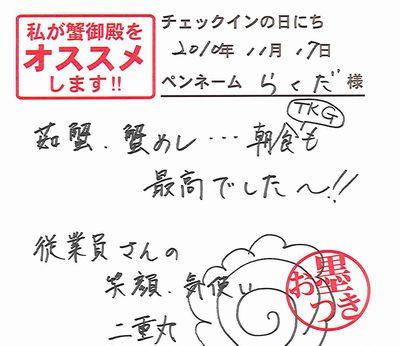 私が蟹御殿を
オススメ
します!!
チェックインの日にち
2010年 11月 17日
ペンネーム らくだ 様
TKG
茹蟹、蟹めし…朝食も
最高でした〜!!
従業員さんの
笑顔、気使い
二重丸
お墨つき